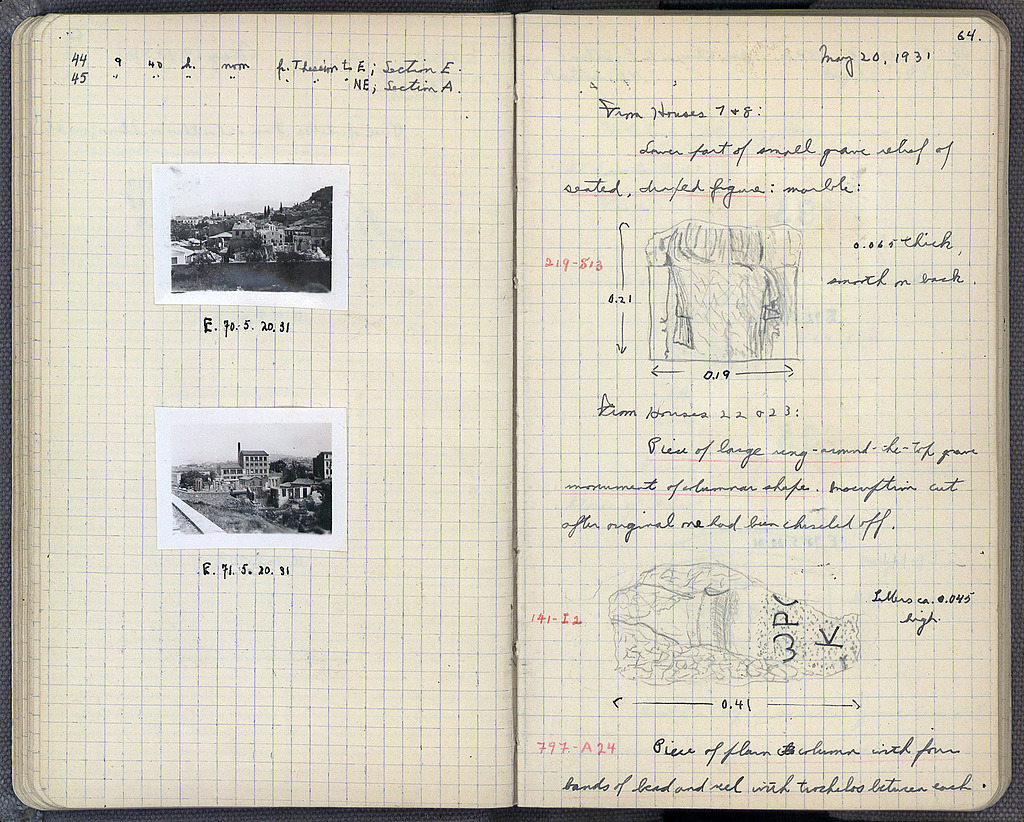 44 9 40 h. noon fr. Theseion to E; Section E.
45 " " " " " " " NE; Section A.
E. 70. 5. 20. 31
E. 71. 5. 20. 31
64.
May 20, 1931
From Houses 7 & 8:
Lower part of small grave relief of
seated, draped figure: marble:
219-S13
0.21
0.065 thick,
smooth on back.
0.19
From Houses 22 & 23:
Piece of large ring-around-the-top grave
monument of columnar shape. Inscription cut
after original one had been chiseled off.
141-I2
ωΡC
K
Letters ca. 0.045
high.
0.41
797-A24 Piece of plain column with four
bands of bead and reel with trochelos between each.